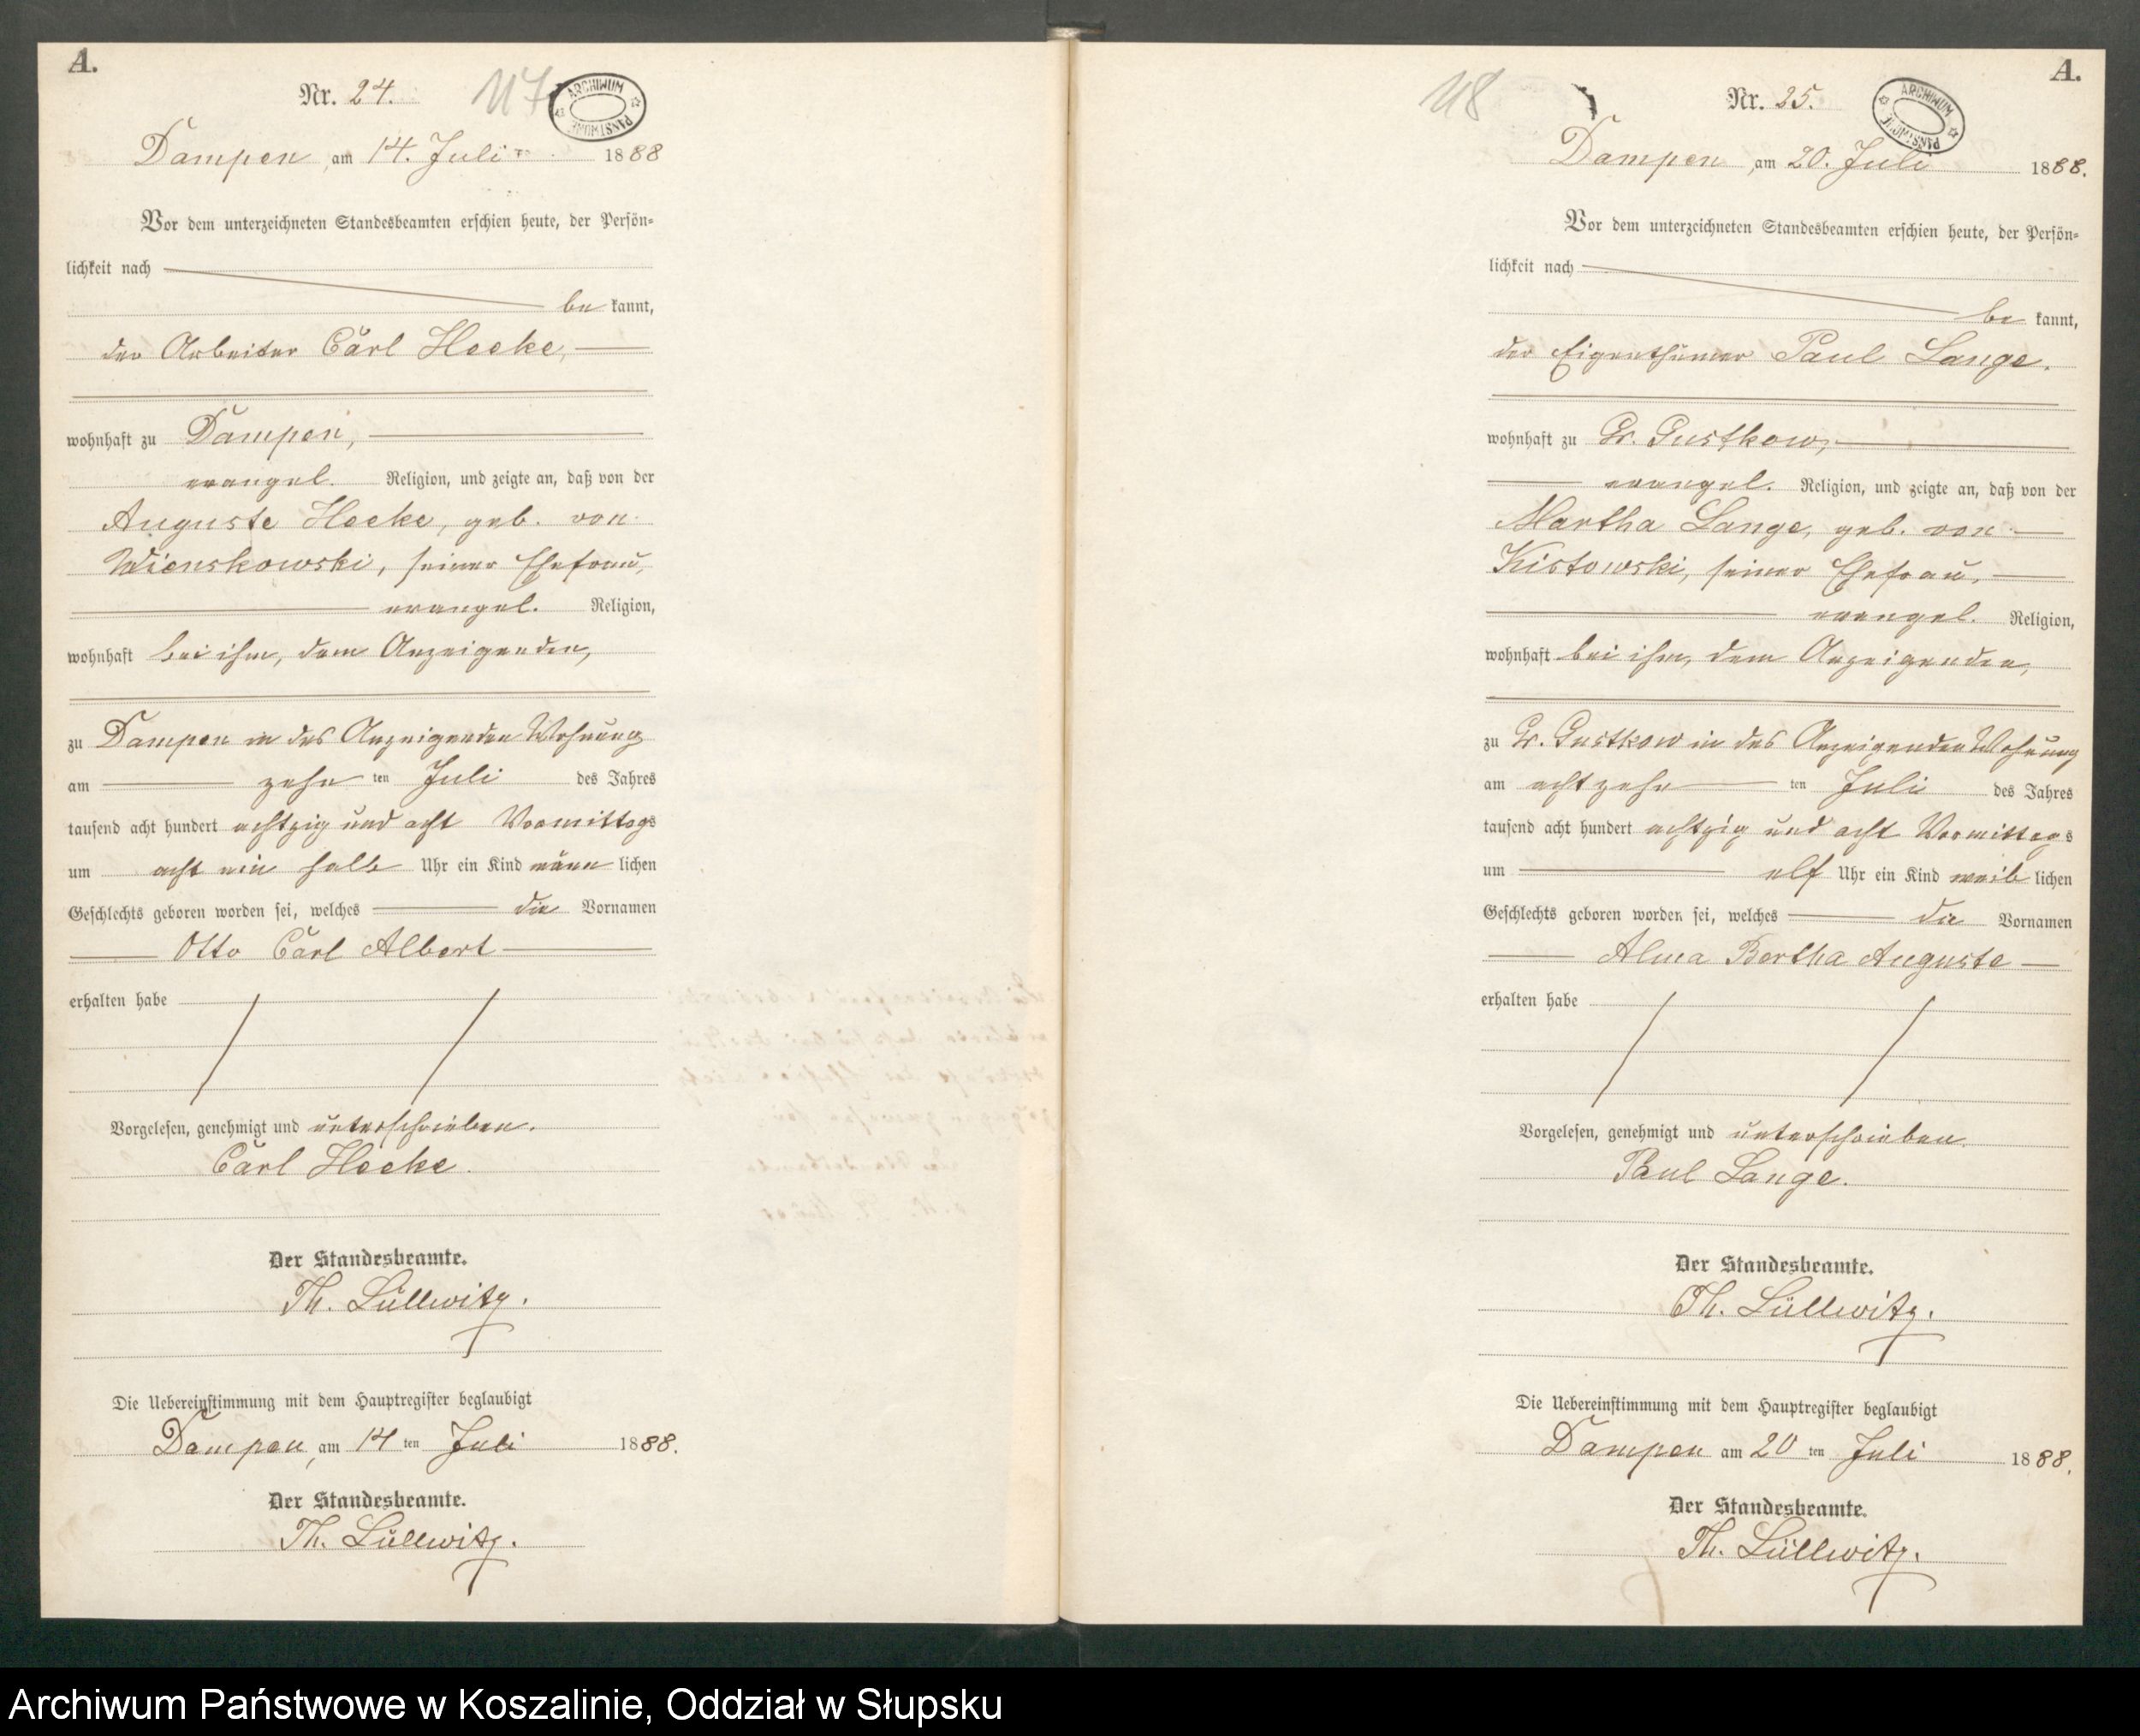 A.
Nr. 24.
117
ARCHIWUM PAŃSTWOWE
Dampen, am 14. Juli 1888
Vor dem unterzeichneten Standesbeamten erschien heute, der Persön-
lichkeit nach
be kannt,
der Arbeiter Carl Heeke,
wohnhaft zu Dampen,
evangel. Religion, und zeigte an, daß von der
Auguste Heeke, geb. von
Wienskowski, seiner Ehefrau,
evangel. Religion,
wohnhaft bei ihm, dem Anzeigenden,
zu Dampen in des Anzeigenden Wohnung
am zehn ten Juli des Jahres
tausend acht hundert achtzig und acht Vormittags
um acht ein halb Uhr ein Kind männ lichen
Geschlechts geboren worden sei, welches die Vornamen
Otto Carl Albert
erhalten habe
Vorgelesen, genehmigt und unterschrieben.
Carl Heeke.
Der Standesbeamte.
Th. Lüllwitz.
Die Uebereinstimmung mit dem Hauptregister beglaubigt
Dampen, am 14 ten Juli 1888.
Der Standesbeamte.
Th. Lüllwitz.
A.
118
Nr. 25.
ARCHIWUM PAŃSTWOWE
Dampen, am 20. Juli 1888.
Vor dem unterzeichneten Standesbeamten erschien heute, der Persön-
lichkeit nach
be kannt,
der Eigenthümer Paul Lange.
wohnhaft zu Gr. Gustkow,
evangel. Religion, und zeigte an, daß von der
Martha Lange, geb. von
Kistowski, seiner Ehefrau,
evangel. Religion,
wohnhaft bei ihm, dem Anzeigenden,
zu Gr. Gustkow in des Anzeigenden Wohnung
am achtzehn ten Juli des Jahres
tausend acht hundert achtzig und acht Vormittags
um elf Uhr ein Kind weib lichen
Geschlechts geboren worden sei, welches die Vornamen
Alma Bertha Auguste
erhalten habe
Vorgelesen, genehmigt und unterschrieben.
Paul Lange.
Der Standesbeamte.
Th. Lüllwitz.
Die Uebereinstimmung mit dem Hauptregister beglaubigt
Dampen am 20 ten Juli 1888.
Der Standesbeamte.
Th. Lüllwitz.
Archiwum Państwowe w Koszalinie, Oddział w Słupsku